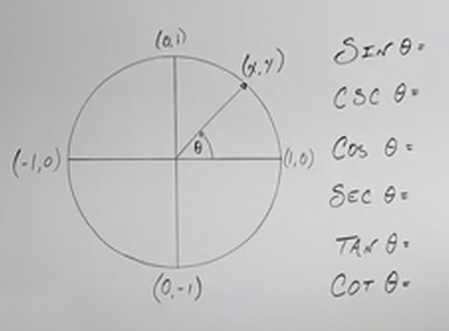 (0,1)
(x,y)
θ
(-1,0)
(1,0)
(0,-1)
SIN θ=
CSC θ=
COS θ=
SEC θ=
TAN θ=
COT θ=